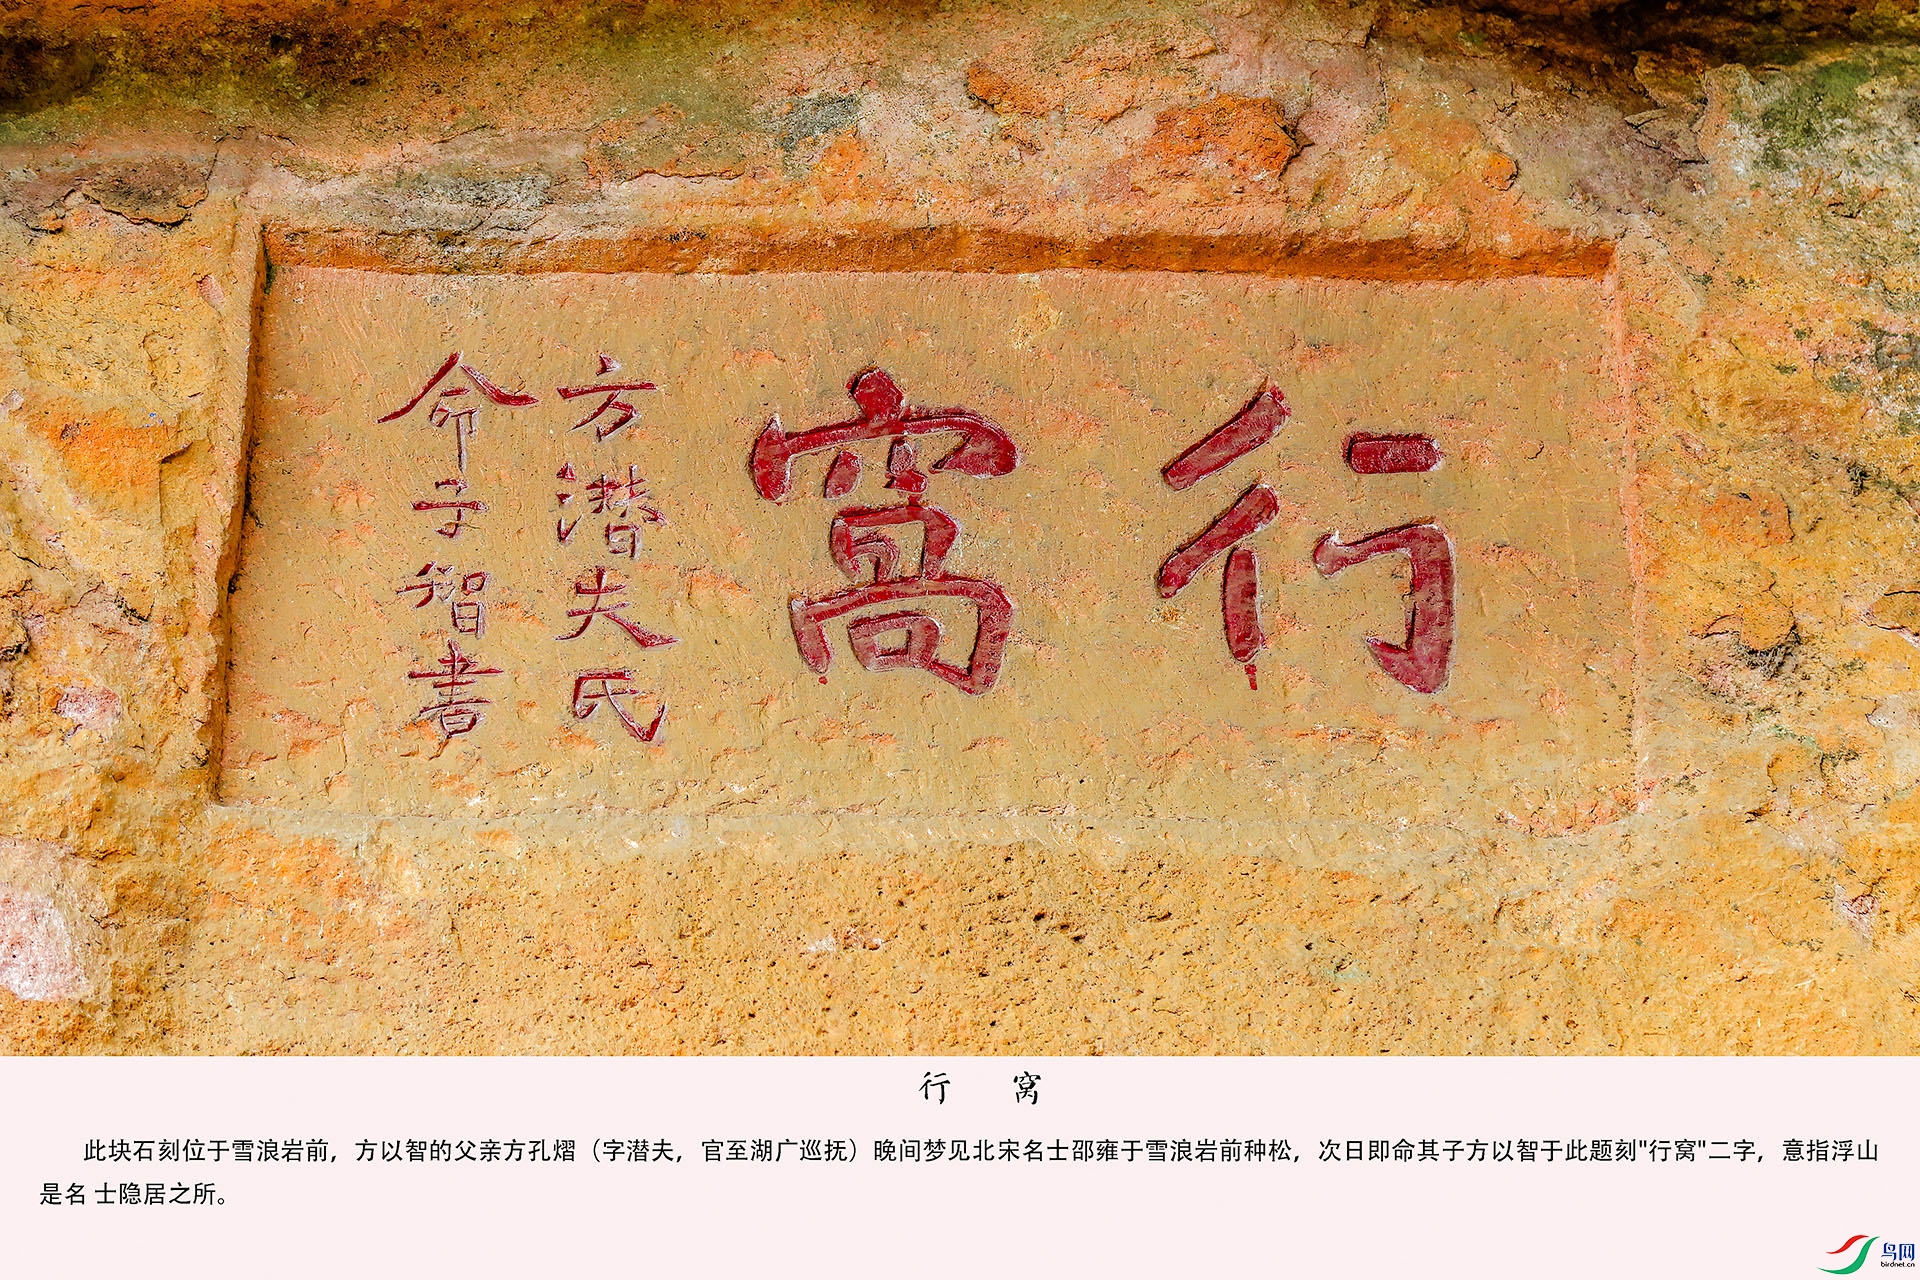 行窩
方潛夫氏
命子智書
行 窝
此块石刻位于雪浪岩前，方以智的父亲方孔熠（字潜夫，官至湖广巡抚）晚间梦见北宋名士邵雍于雪浪岩前种松，次日即命其子方以智于此题刻"行窝"二字，意指浮山
是名 士隐居之所。
鸟网
birdnet.cn